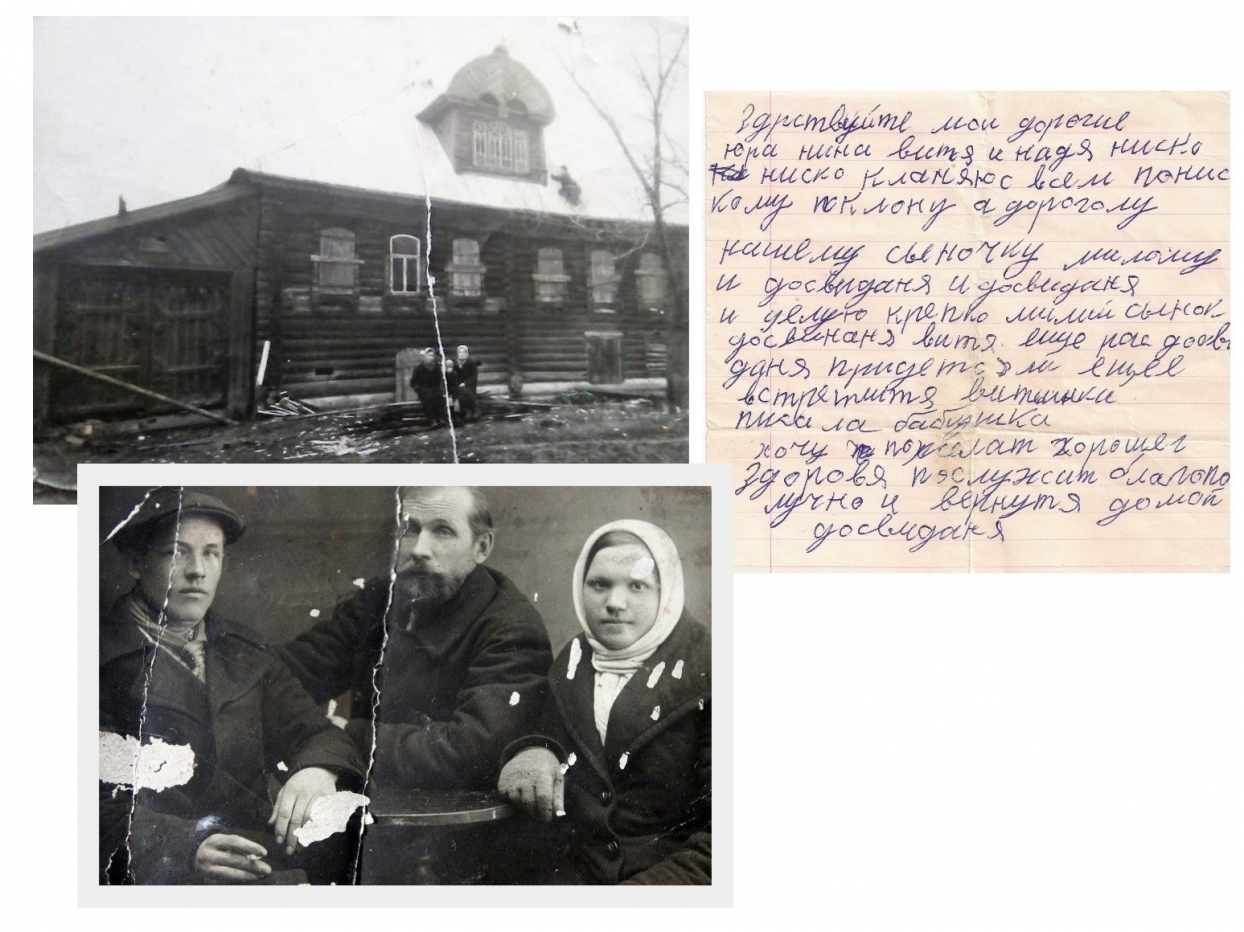 Здрствуйте мои дорогие
юра нина витя и надя ниско
ниско кланяюс всем понис
кому поклону а дорогому
нашему сыночку милому
и досвиданя и досвиданя
и целую крепко милий сынок
досвинаня витя еще рас досви
даня придетса ли ещее
встретитя витинка
писала бабушка
хочу пожелат хорошег
здоровя послужит благопо
лучно и вернутя домой
досвиданя